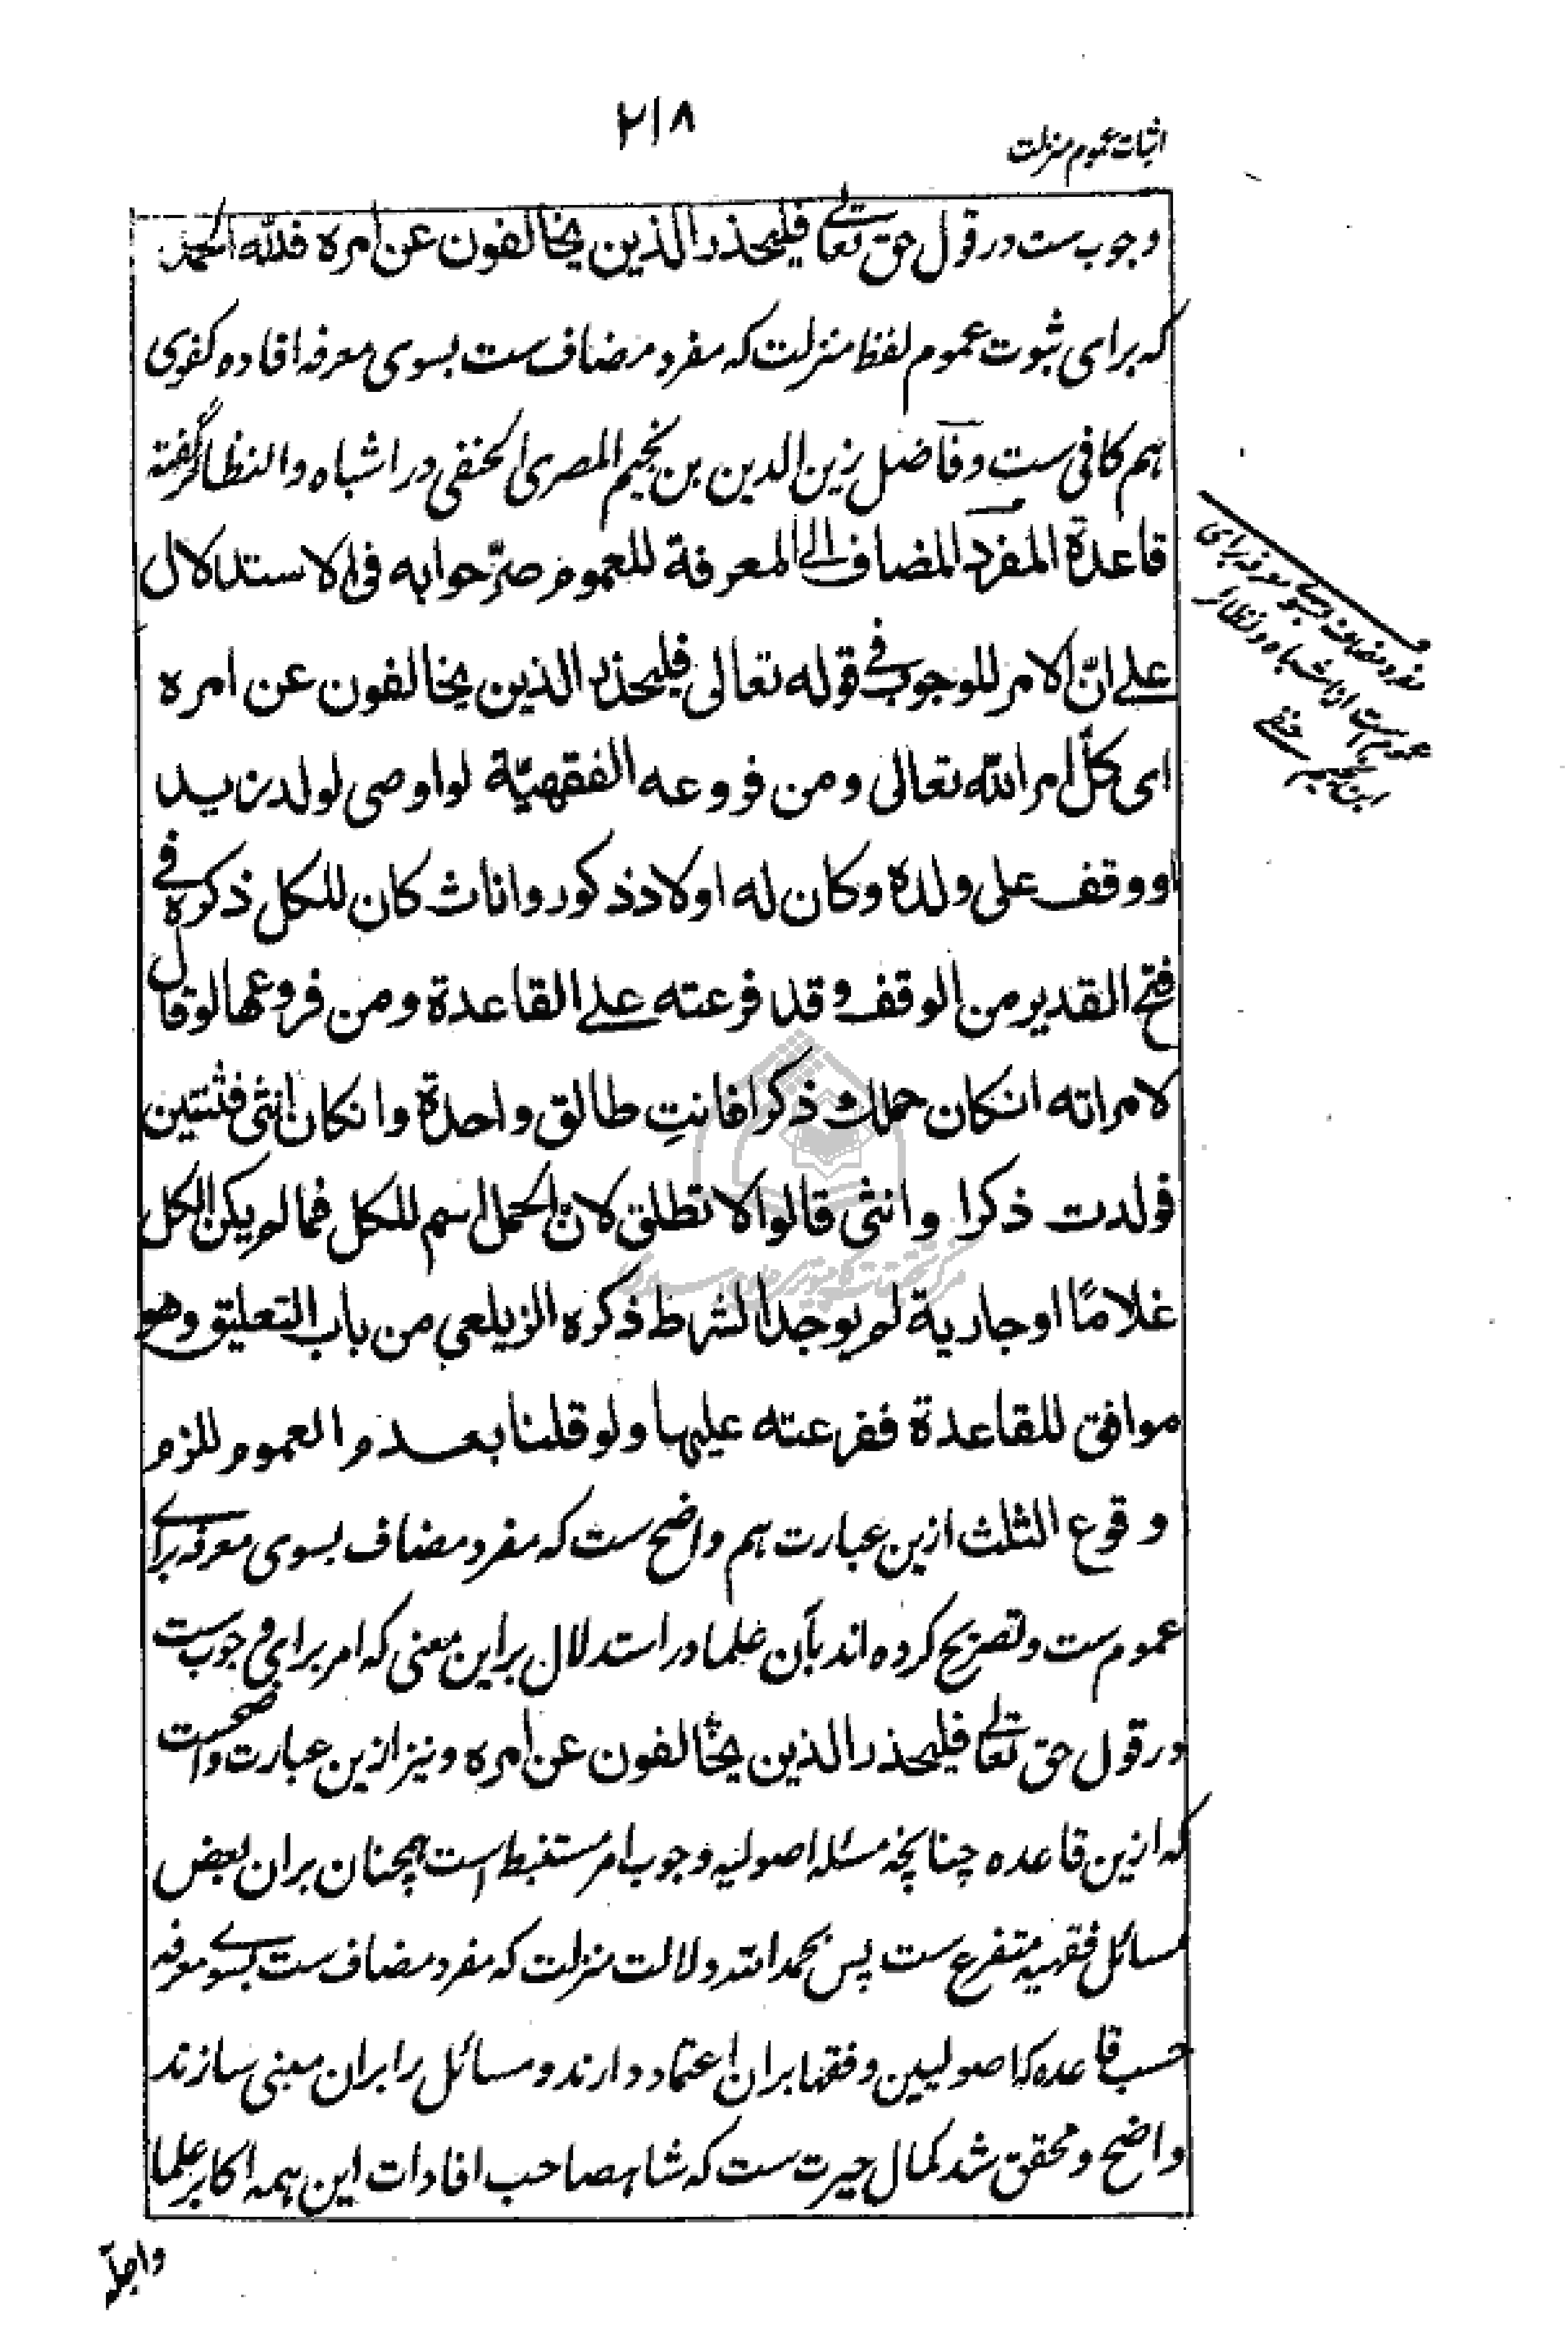 ۲۱۸
اثبات عموم منزلت
وجوب ست در قول حق تعالی فلیحذر الذین یخالفون عن امره فلله الحمد
که برای ثبوت عموم لفظ منزلت که مفرد مضاف ست بسوی معرفه افاده کفوی
هم کافی ست و فاضل زین الدین بن نجیم المصری الحنفی در اشباه والنظائر گفته
قاعدة المفرد المضاف الی المعرفة للعموم صرّحوا به فی الاستدلال
علی انّ الامر للوجوب فی قوله تعالی فلیحذر الذین یخالفون عن امره
ای کلّ امر الله تعالی ومن فروعه الفقهیّة لو اوصی لولد زید
او وقف علی ولده وکان له اولاد ذکور واناث کان للکل ذکره فی
فتح القدیر من الوقف وقد فرعته علی القاعدة ومن فروعها لو قال
لامراته انکان حملك ذکرا فانتِ طالق واحدة وانکان انثی فثنتین
فولدت ذکرا وانثی قالوا لا تطلق لان الحمل اسم للکل فما لم یکن الکل
غلامًا او جاریة لم یوجد الشرط ذکره الزیلعی من باب التعلیق وهو
موافق للقاعدة ففرعته علیها ولو قلنا بعدم العموم للزم
وقوع الثلث ازین عبارت هم واضح ست که مفرد مضاف بسوی معرفه برای
عموم ست و تصریح کرده اند بآن علما در استدلال براین معنی که امر برای وجوب ست
در قول حق تعالی فلیحذر الذین یخالفون عن امره و نیز ازین عبارت واضح است
که ازین قاعده چنانچه مسئله اصولیه وجوب امر مستنبط است همچنان بران بعض
مسائل فقهیه متفرع ست پس بحمد الله دلالت منزلت که مفرد مضاف ست بسوی معرفه
حسب قاعده که اصولیین و فقها بران اعتماد دارند و مسائل را بران مبنی سازند
واضح و محقق شد کمال حیرت ست که شاهصاحب افادات این همه اکابر علما
مفرد مضاف بسوی معرفه برای
عموم ست از اشباه و نظائر
ابن نجیم حنفی